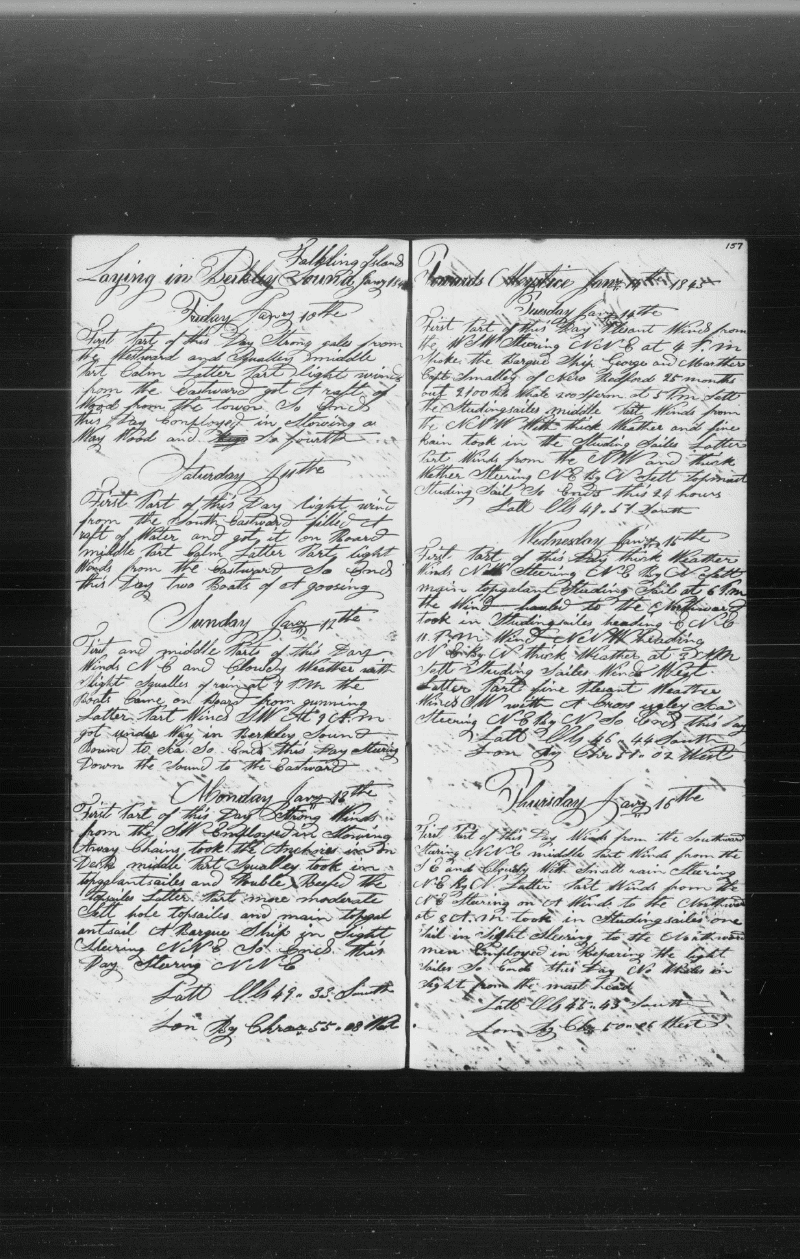 Falkling Island
Laying in Berkley Sound Janry
Friday Janry 10the
First Part of this Day Strong gales from
the Westward and Squalley middle
Part Calm Latter Part light winds
from the Eastward got A raft of
Wood from the lower So Ends
this Day Employed in Stowing a
Way Wood and So fourth
Saturday J 11the
First Part of this Day light wind
from the South Eastward filled A
raft of Water and got it on Board
middle Part Calm Latter Part light
Winds from the Eastward So Ends
this Day two Boats of at goosing
Sunday Janry 12the
First and middle Parts of this Day
Winds N E and Cloudy Weather with
Slight Squalles of rain at 7 P.M the
Boats Came on board from gunning
Latter Part Winds SW At 9 A.M
got under Way in Berkley Sound
Bound to Sea So Ends this Day Steering
Down the Sound to the Eastward
Monday Janry 13the
First Part of this Day Strong Winds
from the SW Employed in Stowing
Away Chains took the Anchores in on
Deck middle Part Squalley took in
topgalantsailes and Double Reefed the
topsailes Latter Part more moderate
Sett hole topsailes and main topgal
antsail A Barque Ship in Sight
Steering NNE So Ends this
Day Steering NNE
Latt Obs 49.. 35 South
Lon By Chro 55.. 08 West
157
Towards Janr 14th 184
Tuesday Janry 14the
First Part of this Day Plesant Winds from
the WSW Steering ENE at 4 P.M
Spoke the Barque Ship George and Marther
Capt Smalley of New Bedford 25 months
out 2100 bls Whale 200 Sperm at 5 P.M Sett
the Studingsailes middle Part Winds from
the NNW With thick Weather and fine
Rain took in the Studing Sailes Latter
Part Winds from the NW and thick
Wether Steering NE by N Sett topmast
Studing Sail So Ends this 24 hours
Latt Obs 48.. 57 South
Wednesday Janry 15the
First Part of this Day thick Weather
Winds NW Steering NE By N Sett
main topgalant Studing Sail at 6 P.m
the Wind hauled to the Northward
took in Studingsailes heading ENE
11 P.m Wind NNW heading
NE by N thick Weather at 3 A.M
Sett Studing Sailes Winds West
Latter Part fine Plesant Weather
Winds SW with A Cross ugley Sea
Steering NE By N So Ends this Day
Latt Obs 46.. 44 South
Lon By Chr 02 West
Thursday Janry 16the
First Part of this Day Winds from the Southward
Stering NNE middle Part Winds from the
SE and Cloudy With Small rain Steering
NE by N Latter Part Winds from the
NE Steering on A Winde to the Northward
at 8 A.M took in Studingsailes one
Sail in Sight Steering to the Northward
men Employed in Reparing the light
Sailes So Ends this Day No Whales in
Sight from the mast head
Latt Obs 43 South
Lon By Chr 50.. 06 West